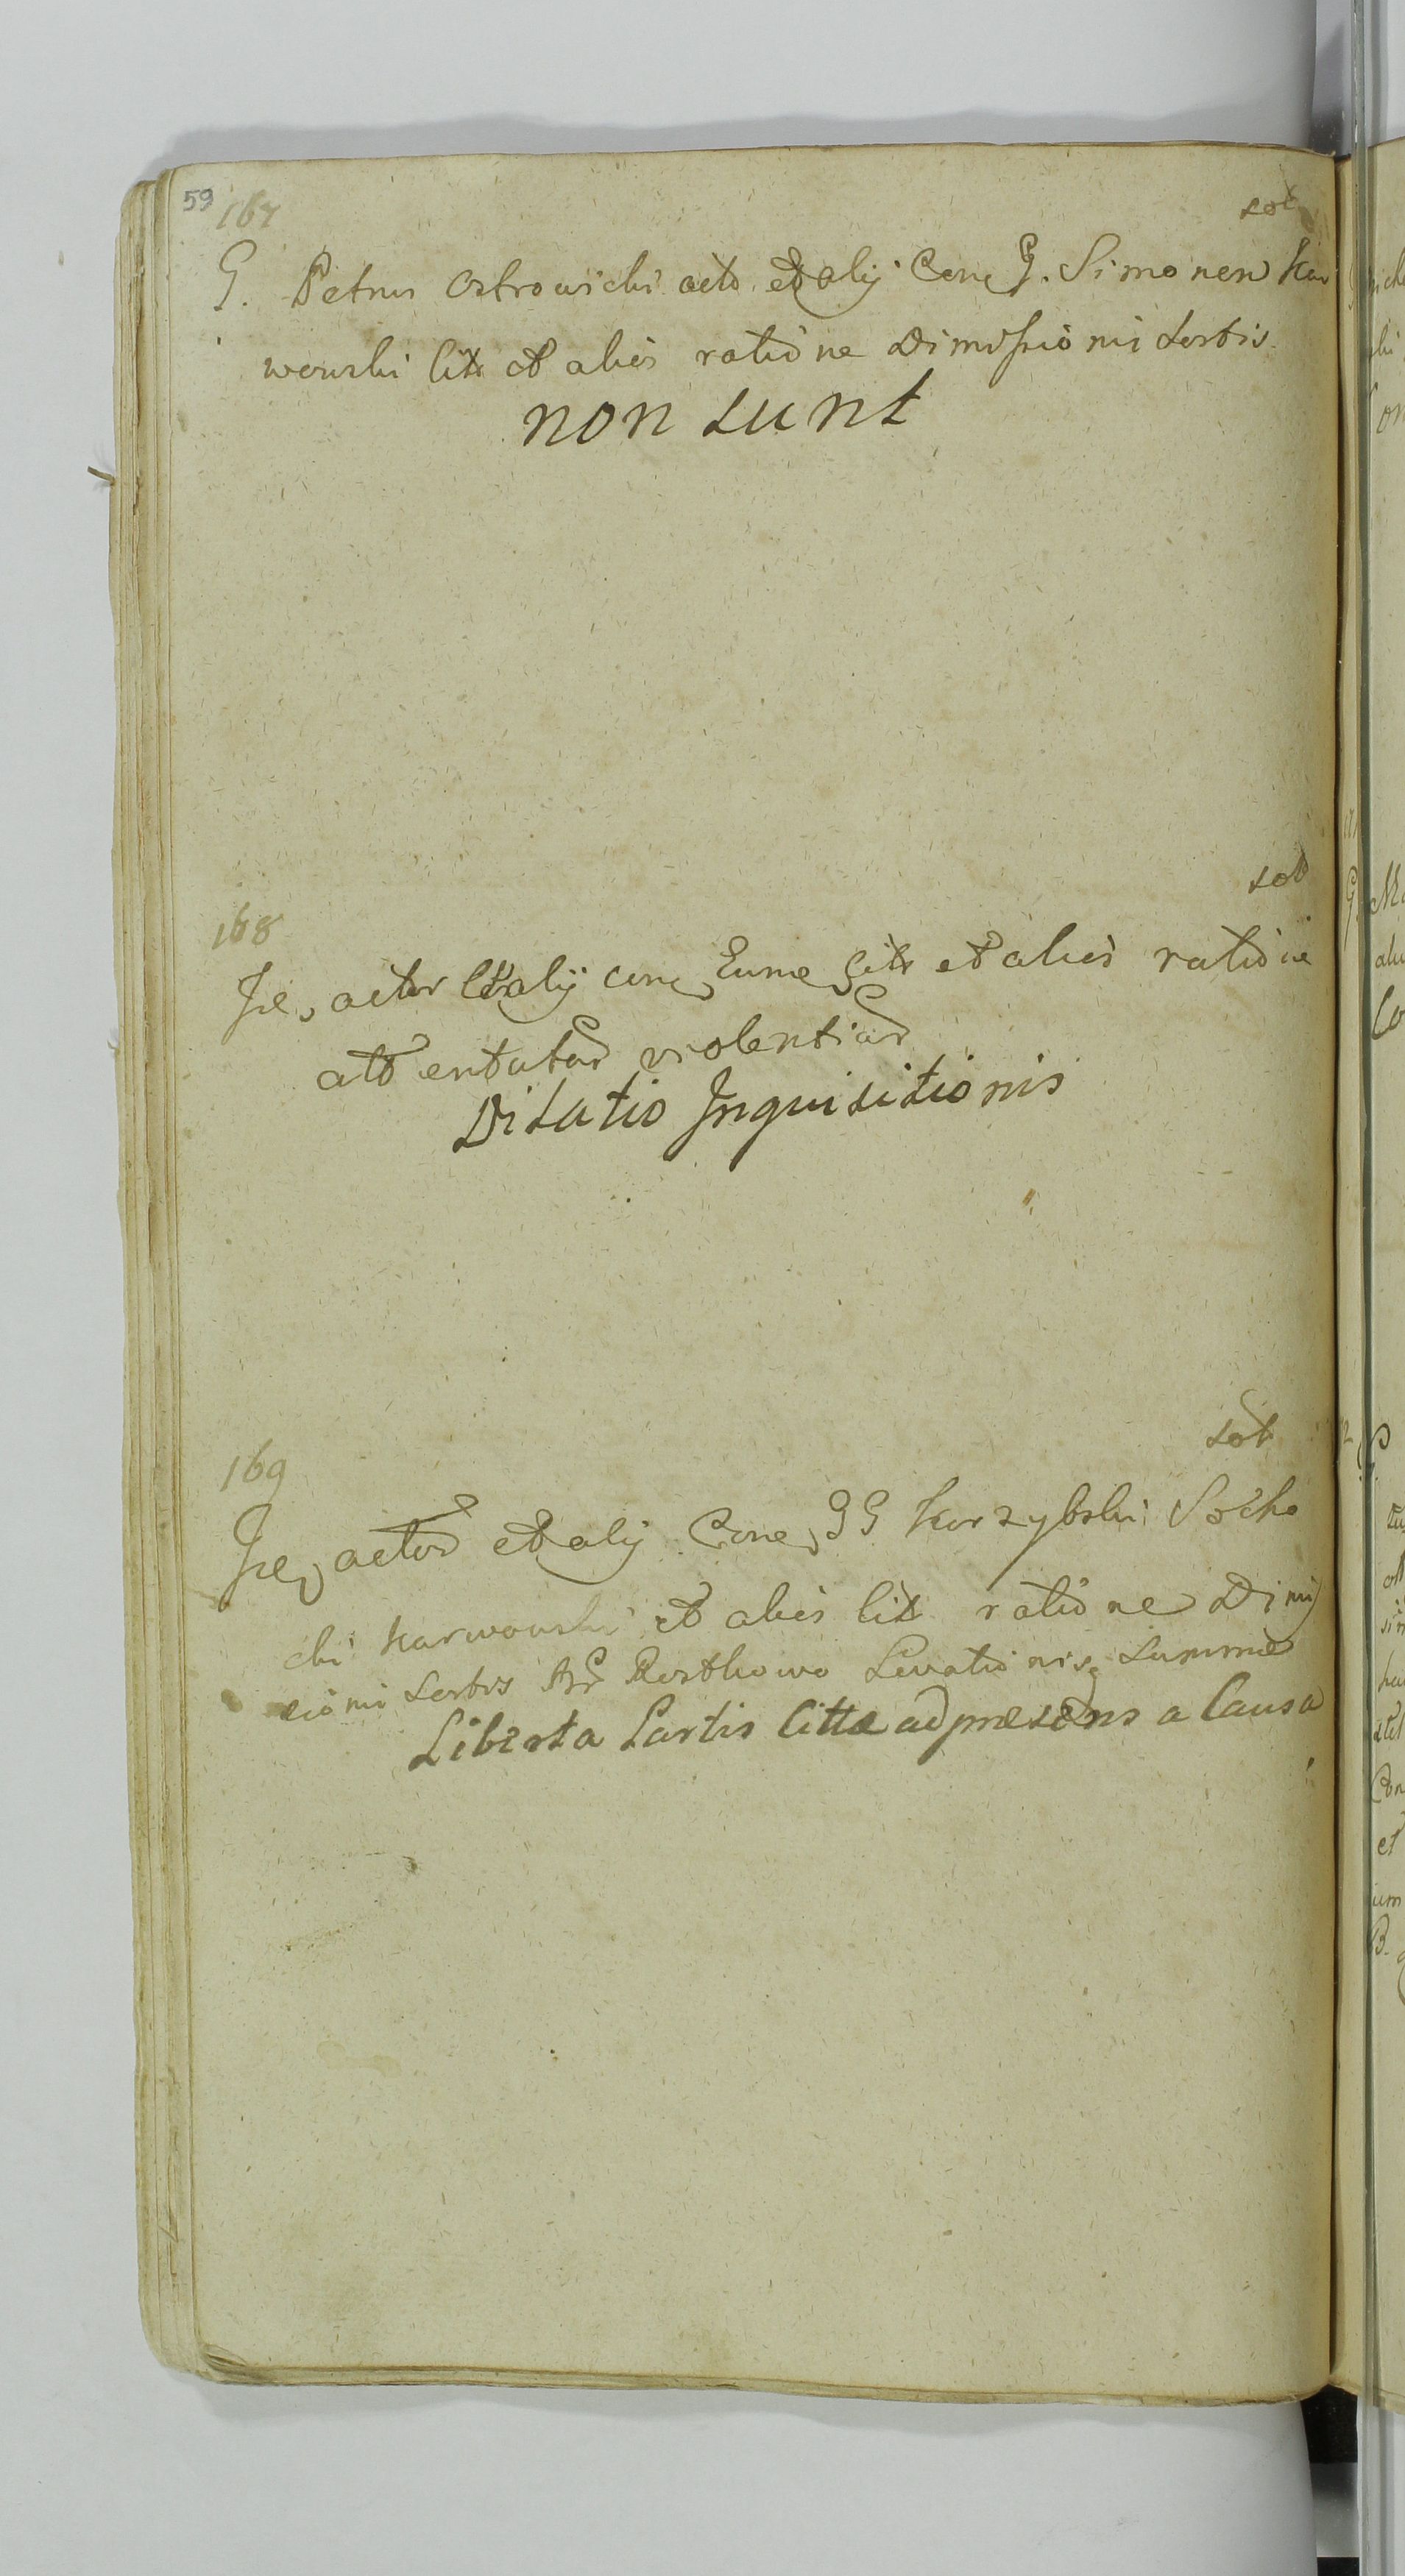 59 167
sot
G. Petrus Ostrowichi acto et alij Con G. Simonem Kar
wowski litt et alios ratione Dimissionis Sortis
non sunt
168
sot
Ice, actor et alij con Eume Citt et alios ratione
attentatar violentiar
Dilatio Inquisitionis
169
sot
Ice, actor et alij Con GG Karzybski Socho
chi Karwowski et alios litt ratione Dimi
sionis Sortis Rosthowo Levationis Summæ
Liberta Partis Cittæ ad præsens a Causa